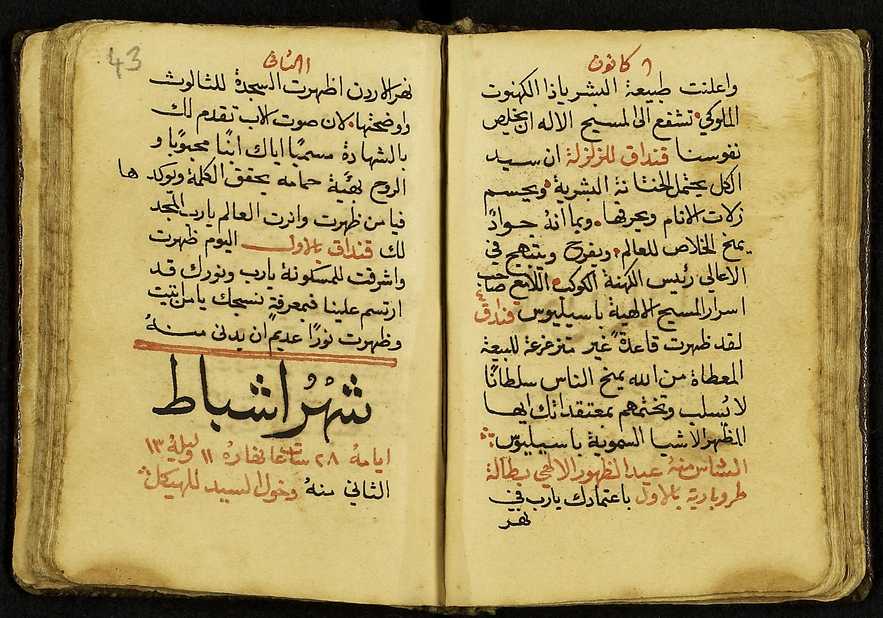 كانون
واعلنت طبيعة البشر ياذا الكهنوت
الملوكي تشفع الى المسيح الاله ان يخلص
نفوسنا قنداق للزلزلة ان سيد
الكل يحتمل الختانة البشرية ويحسم
زلات الانام ويحرقها وبما انهُ جوادً
يمنح الخلاص للعالم ويفرح ويبتهج في
الاعالي رئيس الكهنة الكوكب اللامع صاحب
اسرار المسيح الالهية باسيليوس قنداق ٤
لقد ظهرت قاعدةً غير متزعزعة للبيعة
المعطاة من الله يمنح الناس سلطانًا
لا يُسلب وتختمهم بمعتقداتك ايها
المظهر الاشيا السموية باسيليوس
السادس منهُ عيد الظهور الالهي بطالة
طروبارية بالاول باعتمادك يارب في
نهر
43
الثاني
نهر الاردن اظهرت السجدة للثالوث
واوضحتها لان صوت الاب تقدم لك
بالشهادة مسميًا اياك ابنًا محبوبًا و
الروح بهئية حمامه يحقق الكلمة ويوكدها
فيا من ظهرت وانرت العالم يارب المجد
لك قنداق بالاول اليوم ظهرت
واشرقت للمسكونة يارب ونورك قد
ارتسم علينا فبمعرفةٍ نسبحك يامن اتيت
وظهرت نورًا عديمٍ ان يدنى منهُ
شهرُ اشباط
ايامهُ ٢٨ ساعات نهارهُ ١١ وليلهُ ١٣
الثاني منهُ دخول السيد للهيكل